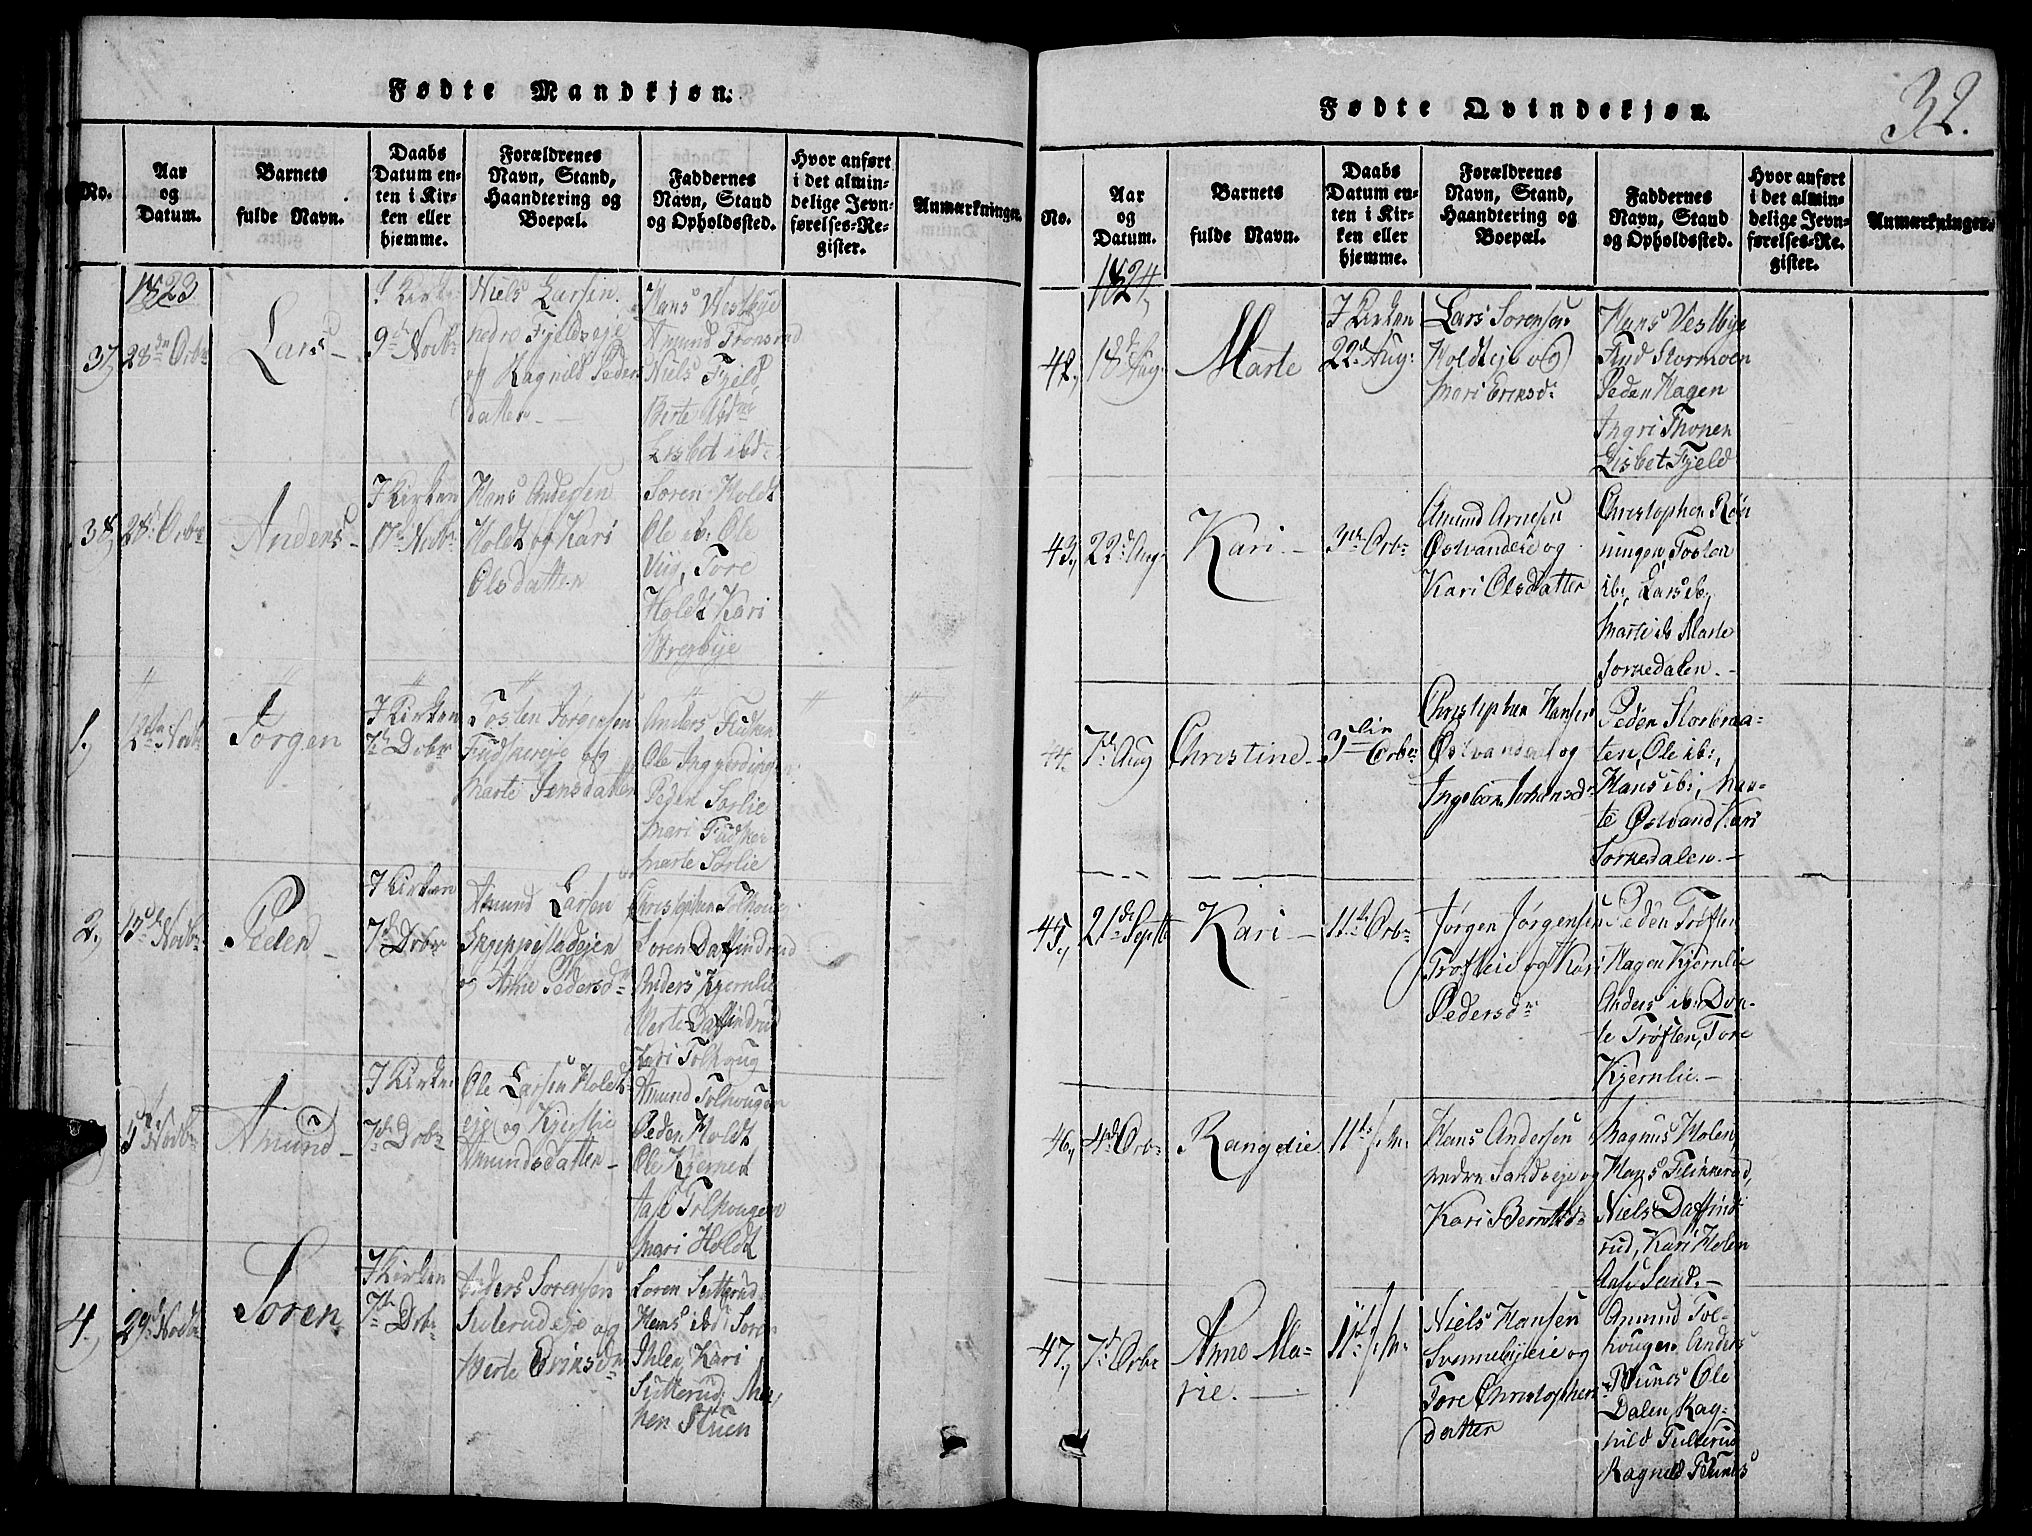 Fødte Mandkjøn.
No.
Aar
og
Datum.
Barnets
fulde Navn.
Daabs
Datum en-
ten i Kir-
ken eller
hjemme.
Forældrenes
Navn, Stand,
Haandtering og
Boepæl.
Faddernes
Navn, Stand
og Opholdssted.
Hvor anført
i det almin-
delige Jevn-
førelses-Re-
gister.
Anmærkninger.
1823
37,
28de Octbr
Lars
I Kirke
9de Novbr
Niels Larsen
nedre Fjeldseje
og Ragnild Peders
datter
Hans Vestbye
Amund Tronsrud
Niels Fjeld
Berte
Lisbet ibd
38,
28d Octbr
Anders
I Kirken
17de Novbr
Hans Andersen
Holdt og Kari
Olsdatter
Søren Holdt
Ole ib: Ole
Viig, Tore
Holdt Kari
1,
12te Novbr
Jørgen
I Kirken
7de Decbr
Tosten Jørgensen
og
Marte Jensdatter
Anders
Ole Ingvordingen
Peder Sørlie
Mari
Marte Sørlie
2,
13de Novbr
Peder
I Kirken
7d Decbr
Amund Larsen
og Anne Pedersd
Christopher Tolhoug
Søren Daffindrud
Anders Kjernlie
Berte Daffindrud
Kari Tolhoug
5te Novbr
Amund
I Kirke
7de Decbr
Ole Larsen Holdt
eje og Kjerstie
Amundsdatter
Amund Tolhougen
Peder Holdt
Ole
Aase Tolhougen
Mari Holdt
4,
29d Novbr
Søren
I Kirken
7de Decbr
Anders Sørensen
Sutterudeje og
Berte Eriksd
Søren Sutterud
Hans ibd: Søren
Ihlen, Kari
Sutterud, Ma-
ren Struen
Fødte Qvindekjøn.
32.
No.
Aar
og
Datum.
Barnets
fulde Navn.
Daabs
Datum en-
ten i Kir-
ken eller
hjemme.
Forældrenes
Navn, Stand,
Haandtering og
Boepæl.
Faddernes
Navn, Stand
og Opholdssted.
Hvor anført
i det almin-
delige Jevn-
førelses-Re-
gister.
Anmærkninger.
1824,
42,
18de Aug:
Marte
I Kirken
22d Aug:
Lars Sørensen
Holdteje og
Mari Eriksd:
Hans Vestbye
Knud Stormoen
Peder Hagen
Ingri Thonen
Lisbet Fjeld
43,
22d Aug
Kari
3de Octbr
Amund Arnesen
Østvandeie og
Kari Olsdatter
Christopher Røn
ningen, Tosten
ib:, Lars ib,
Marte ib Marte
Sørkedalen.
44.
7d Aug
Christine
3die Octbr
Christopher Hansen
Østvandeie og
Ingebor Johansd
Peder Storbraa-
ten, Ole ib:,
Hans ib:, Mar-
te Østvand, Kari
Sørkedalen.
45,
21de Septbr
Kari
11te Octbr
Jørgen Jørgensen
Trøfteie og Kari
Pedersdr
Peder Trøften
Hagen Kjernlie
Anders ib: Dor-
te Trøften, Tore
Kjernlie.
46,
4de Octbr
Rangdie
11te s: M:
Hans Andersen
nedre Sandseje og
Kari Berntsdr
Magnus Holen
Hans Flinkerud,
Niels Daffind-
rud, Kari Holen
Aase Sand.
47,
7d Octbr
Anne Ma-
rie.
11te s: M:
Niels Hansen
Svennebyeie og
Tore Christophers
datter
Amund Tol-
hougen, Anders
Funes Ole
Dalen, Rag-
nild Tullerud
Ragnild Funes